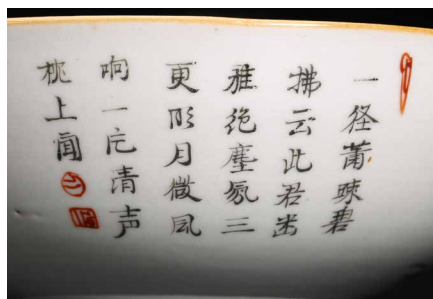 一径萧疎碧
拂云此君
雅绝塵氛三
更月微风
响一片清声
枕上闻